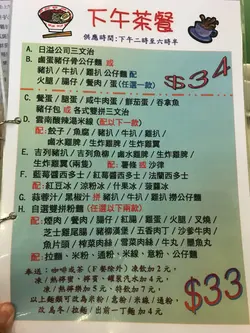 下午茶餐
供應時間:下午二時至六時半
A. 日溢公司三文治
B. 鹵蛋豬仔骨公仔麵 或
豬扒/牛扒/雞扒公仔麵 配
火腿/腸仔/餐肉/蛋(任選一款)
$34
C. 餐蛋/腿蛋/咸牛肉蛋/鮮茄蛋/吞拿魚
豬仔包 或 各式雙拼三文治
D. 雲南酸辣湯米線(配以下一款)
配:餃子/魚腐/豬扒/牛扒/雞扒/
鹵水雞脾/生炸雞脾/生炸雞翼
E. 吉列豬扒/吉列魚柳/鹵水雞脾/生炸雞脾/
生炸雞翼(兩隻) 配:薯條 或 沙律
F. 藍莓醬西多士/紅莓醬西多士/法蘭西多士
配:紅豆冰/涼粉冰/什果冰/菠蘿冰
G. 蒜蓉汁/黑椒汁 拼 豬扒/牛扒/雞扒撈公仔麵
H. 自選雙拼粉麵(任選以下兩款)
配:煙肉/餐肉/腸仔/紅腸/雞蛋/火腿/叉燒/
芝士雞尾腸/豬柳漢堡/五香肉丁/沙爹牛肉/
魚片頭/榨菜肉絲/雪菜肉絲/牛丸/墨魚丸
配:拉麵、米粉、通粉、米線、意粉、公仔麵
奉送:咖啡或茶(F餐除外)凍飲加2元,
$33